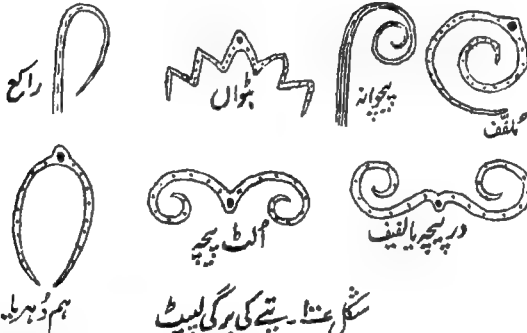 راکع
بٹواں
پیچوانہ
ملفّف
ہم دُہریا
اُلٹ پیچہ
در پیچہ یا لفیف
شکل ۱۰۰۔ پتے کی برگی لپیٹ